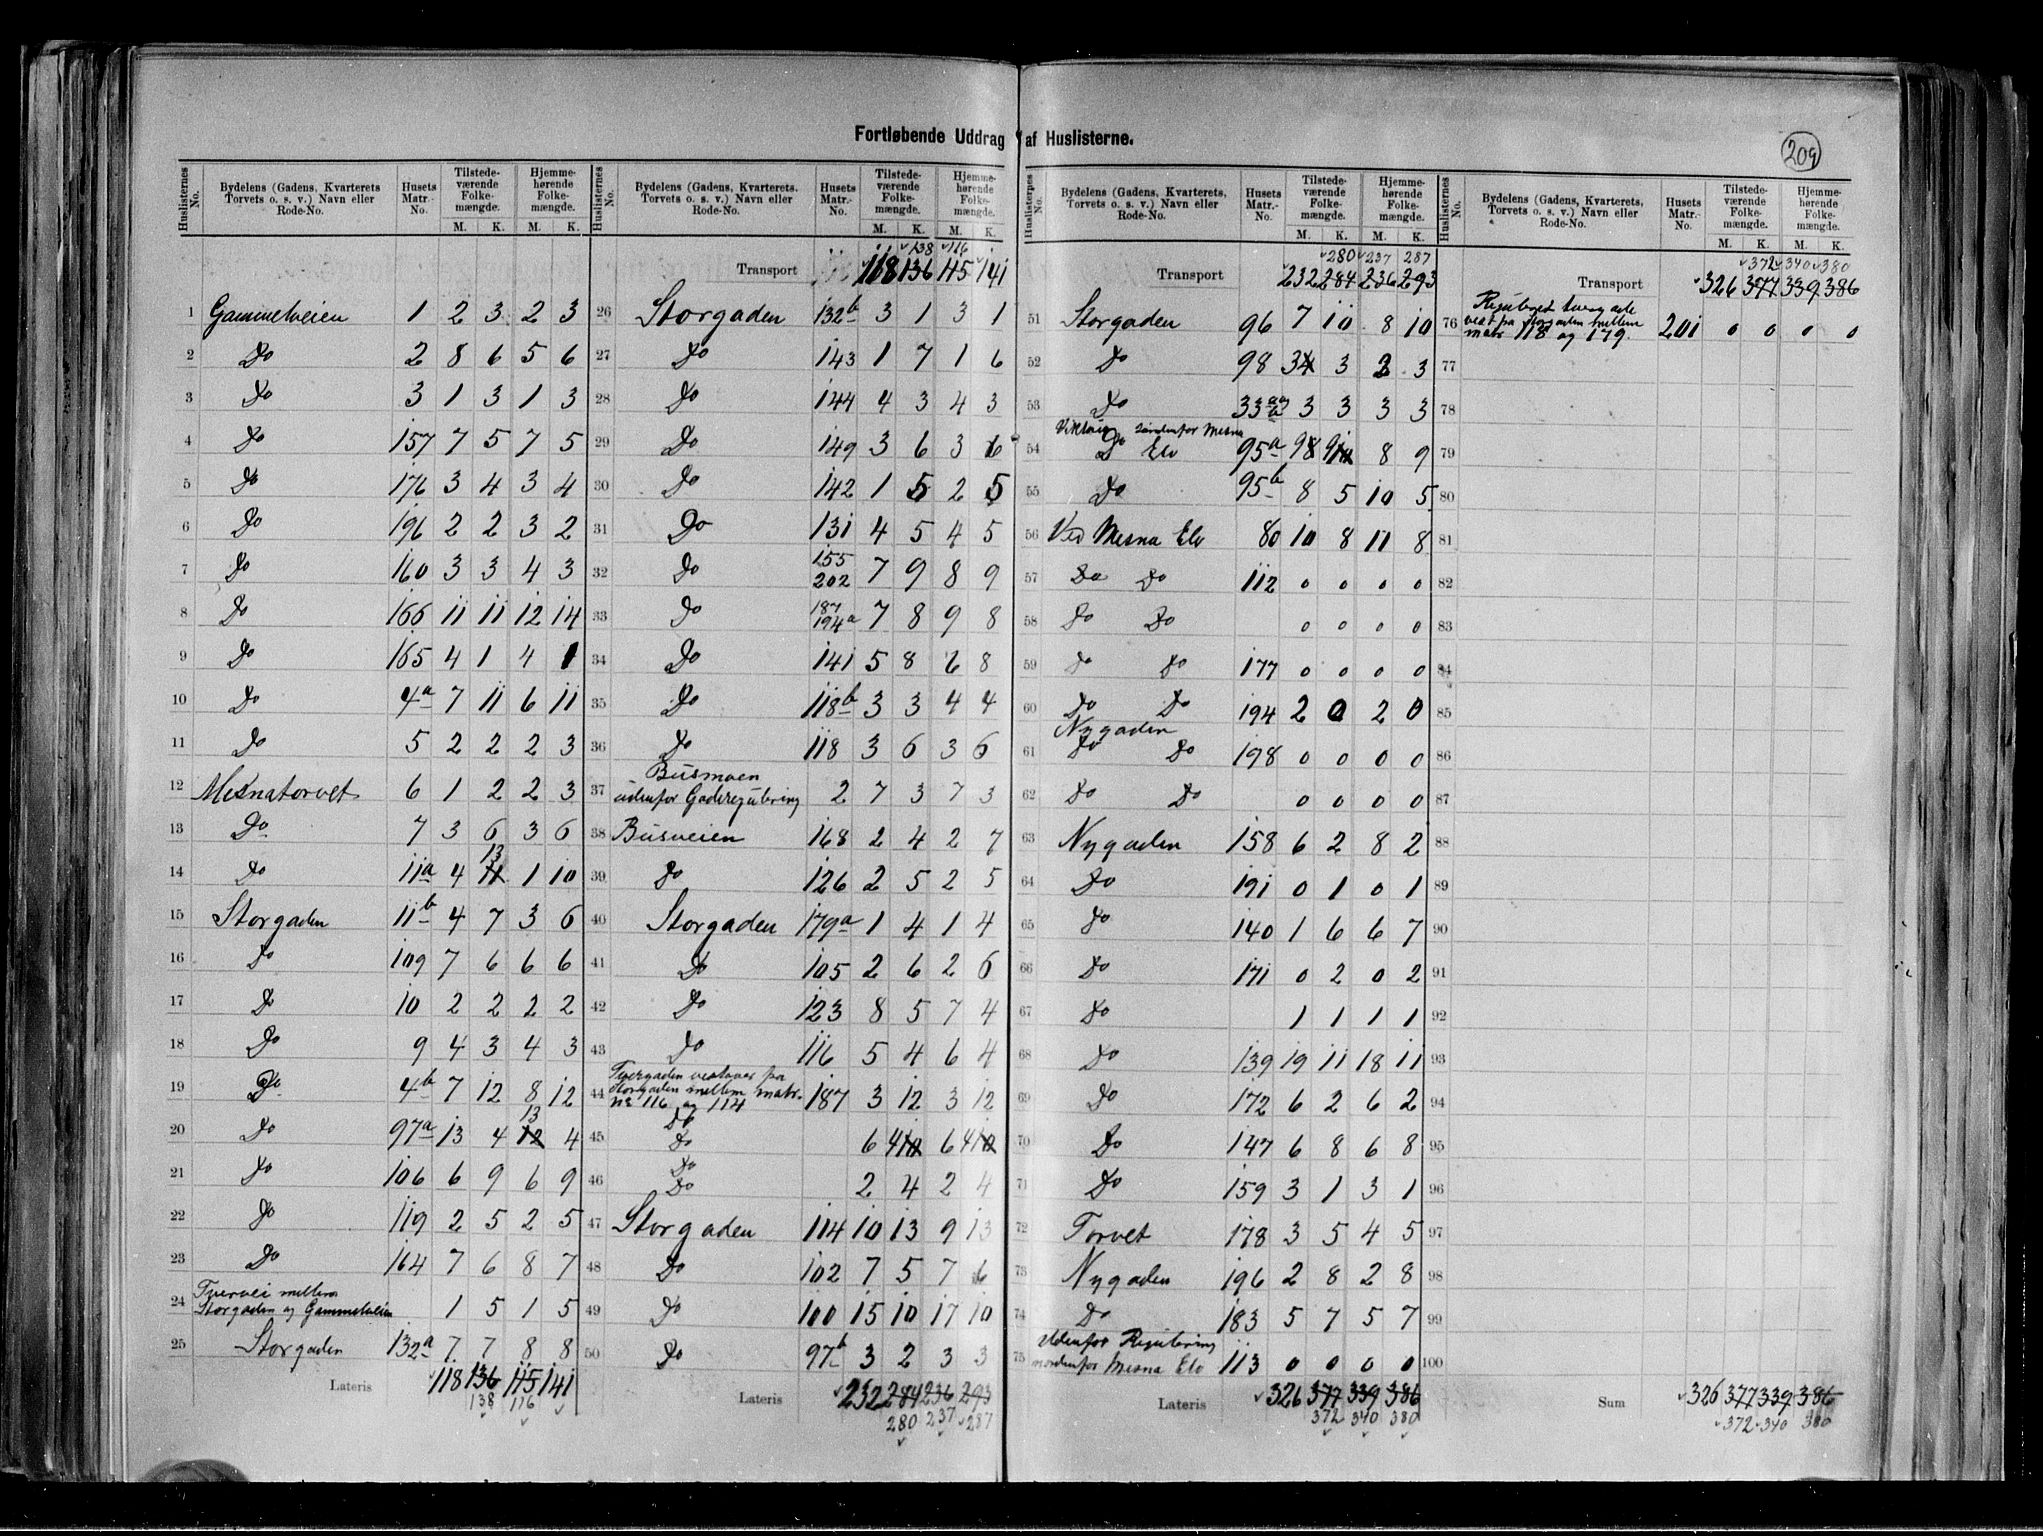 Fortløbende Uddrag af Huslisterne.
209
Huslisternes No. | Bydelens (Gadens, Kvarterets Torvets o. s. v.) Navn eller Rode-No. | Husets Matr.-No. | Tilstede-værende Folke-mængde. M. K. | Hjemme-hørende Folke-mængde. M. K.
1 Gammelveien 1 2 3 2 3
2 Do 2 8 6 5 6
3 Do 3 1 3 1 3
4 Do 157 7 5 7 5
5 Do 176 3 4 3 4
6 Do 196 2 2 3 2
7 Do 160 3 3 4 3
8 Do 166 11 11 12 14
9 Do 165 4 1 4 1
10 Do 4a 7 11 6 11
11 Do 5 2 2 2 3
12 Mesnatorvet 6 1 2 2 3
13 Do 7 3 6 3 6
13
14 Do 11a 4 11 1 10
15 Storgaden 11b 4 7 3 6
16 Do 109 7 6 6 6
17 Do 10 2 2 2 2
18 Do 9 4 3 4 3
19 Do 4b 7 12 8 12
13
20 Do 97a 13 4 12 4
21 Do 106 6 9 6 9
22 Do 119 2 5 2 5
23 Do 164 7 6 8 7
24 Tvervei mellem
Storgaden og Gammelveien 1 5 1 5
25 Storgaden 132a 7 7 8 8
Lateris 118 136 115 141
138 116
Huslisternes No. | Bydelens (Gadens, Kvarterets. Torvets o. s. v.) Navn eller Rode-No. | Husets Matr.-No. | Tilstede-værende Folke-mængde. M. K. | Hjemme-hørende Folke-mængde. M. K.
138 116
Transport 118 136 115 141
26 Storgaden 132b 3 1 3 1
27 Do 143 1 7 1 6
28 Do 144 4 3 4 3
29 Do 149 3 6 3 6
30 Do 142 1 5 2 5
31 Do 131 4 5 4 5
32 Do 155 202 7 9 8 9
33 Do 187 194a 7 8 9 8
34 Do 141 5 8 6 8
35 Do 118b 3 3 4 4
36 Do 118 3 6 3 6
37 Busmoen
udenfor Gaderegulering 2 7 3 7 3
38 Busveien 168 2 4 2 7
39 Do 126 2 5 2 5
40 Storgaden 179a 1 4 1 4
41 Do 105 2 6 2 6
42 Do 123 8 5 7 4
43 Do 116 5 4 6 4
44 Tvergaden vestover fra
Storgaden mellem matr.
no 116 og 114 187 3 12 3 12
45 Do Do 6 4 10 6 4 10
46 Do Do 2 4 2 4
47 Storgaden 114 10 13 9 13
48 Do 102 7 5 7 6
49 Do 100 15 10 17 10
50 Do 97b 3 2 3 3
Lateris 232 284 236 293
280 237 287
Huslisternes No. | Bydelens (Gadens, Kvarterets, Torvets o. s. v.) Navn eller Rode-No. | Husets Matr.-No. | Tilstede-værende Folke-mængde. M. K. | Hjemme-hørende Folke-mængde. M. K.
280 237 287
Transport 232 284 236 293
51 Storgaden 96 7 10 8 10
52 Do 98 3 4 3 3 3
53 Do 33 3 3 3 3
54 søndenfor Mesna
Do Elv 95a 9 8 9 10 8 9
55 Do 95b 8 5 10 5
56 Ved Mesna Elv 80 10 8 11 8
57 Do Do 112 0 0 0 0
58 Do Do 0 0 0 0
59 Do Do 177 0 0 0 0
60 Do Do 194 2 0 2 0
61 Nygaden
Do Do 198 0 0 0 0
62 Do Do 0 0 0 0
63 Nygaden 158 6 2 8 2
64 Do 191 0 1 0 1
65 Do 140 1 6 6 7
66 Do 171 0 2 0 2
67 Do 1 1 1 1
68 Do 139 19 11 18 11
69 Do 172 6 2 6 2
70 Do 147 6 8 6 8
71 Do 159 3 1 3 1
72 Torvet 178 3 5 4 5
73 Nygaden 196 2 8 2 8
74 Do 183 5 7 5 7
75 Udenfor Regulering
nordenfor Mesna Elv 113 0 0 0 0
Lateris 326 377 339 386
372 340 380
Huslisternes No. | Bydelens (Gadens, Kvarterets, Torvets o. s. v.) Navn eller Rode-No. | Husets Matr.-No. | Tilstede-værende Folke-mængde. M. K. | Hjemme-hørende Folke-mængde. M. K.
372 340 380
Transport 326 377 339 386
76 Reguleret tvergade
vest fra Storgaden mellem
matr. 118 og 179. 201 0 0 0 0
77
78
79
80
81
82
83
84
85
86
87
88
89
90
91
92
93
94
95
96
97
98
99
100
Sum 326 377 339 386
372 340 380